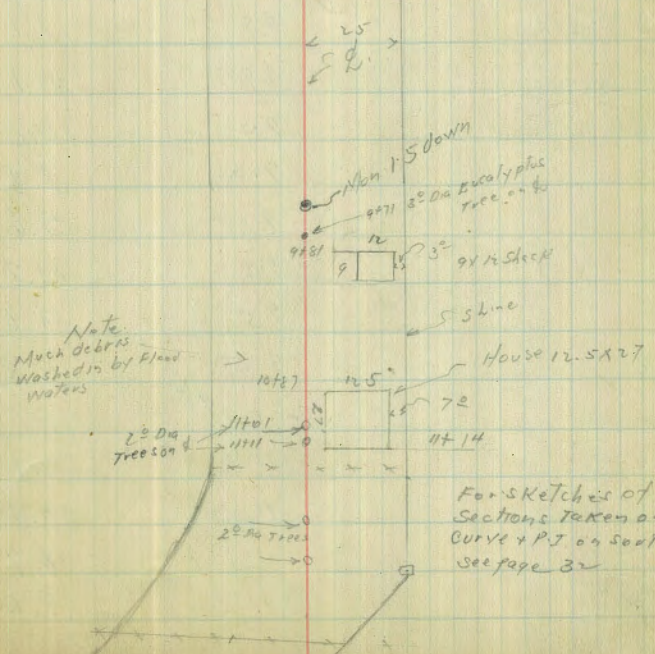 25
℄
Mon 1.5 down
9+71 3º Dia Eucalyptus
Tree on ℄
9+81
12
9
3º
9 x 12 Shack
S Line
Note
Much debris
Washed in by Flood
Waters
House 12.5 x 27
10+87
12.5
27
7º
2º Dia
Trees on ℄
11+01
11+11
11+14
2º Dia Trees
For Sketches of
Sections Taken
Curve + P.I on
See page 32